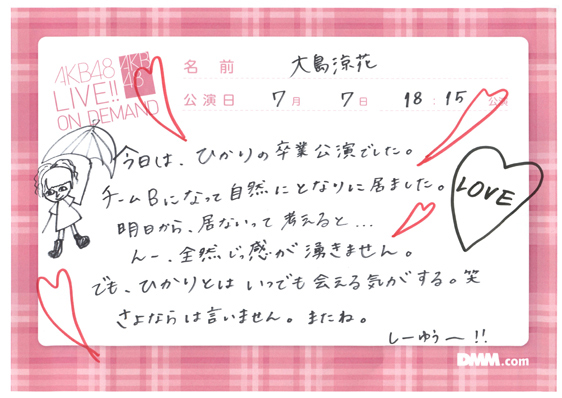 AKB48
LIVE!!
ON DEMAND
AKB
48
名前 大島涼花
公演日 7月 7日 18:15 公演
今日は、ひかりの卒業公演でした。
チームBになって自然にとなりに居ました。
明日から、居ないって考えると...
んー、全然じっ感が湧きません。
でも、ひかりとはいつでも会える気がする。笑
さよならは言いません。またね。
しーゆうー!!
LOVE
DMM.com